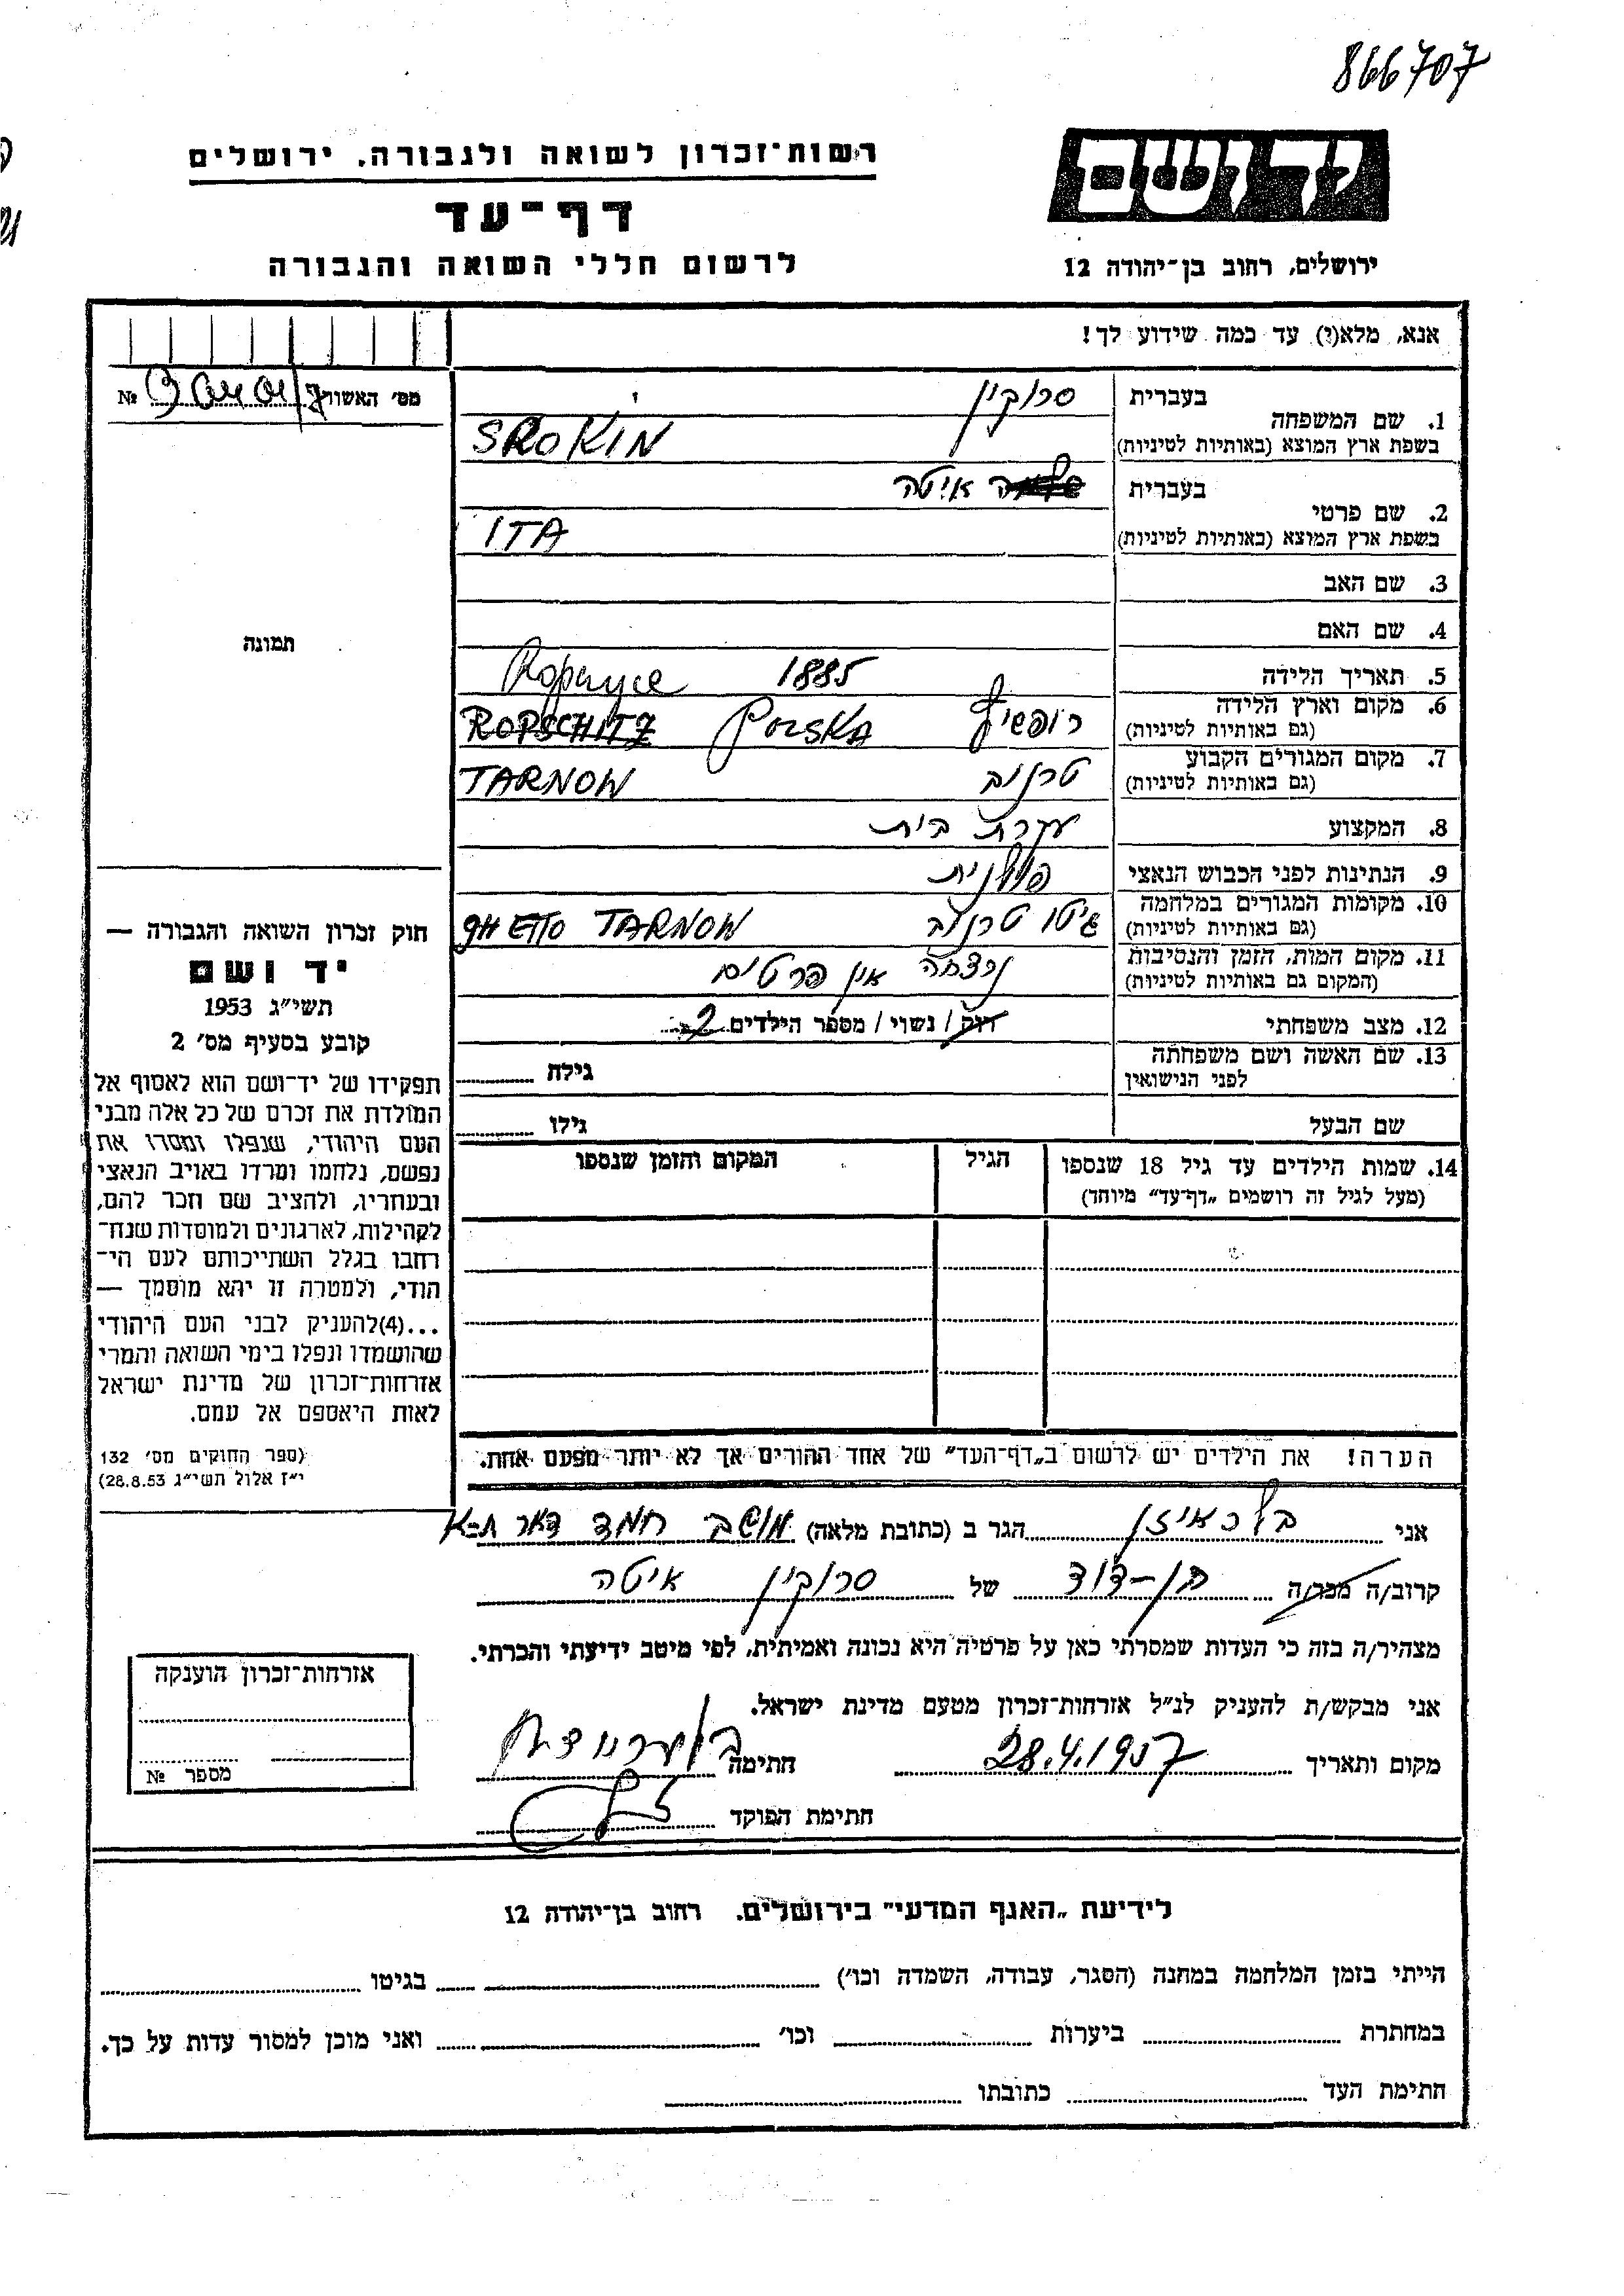 866707
יד ושם
רשות־זכרון לשואה ולגבורה, ירושלים
דף־עד
ירושלים, רחוב בן־יהודה 12
לרשום חללי השואה והגבורה
אנא, מלא(י) עד כמה שידוע לך!
מס׳ האשור №
1. שם המשפחה בעברית סרוקין
בשפת ארץ המוצא (באותיות לטיניות) SROKIN
2. שם פרטי בעברית איטה
בשפת ארץ המוצא (באותיות לטיניות) ITA
3. שם האב
4. שם האם
תמונה
5. תאריך הלידה 1885
Ropczyce
6. מקום וארץ הלידה (גם באותיות לטיניות) רופשיץ POLSKA ROPSCHITZ
7. מקום המגורים הקבוע (גם באותיות לטיניות) טרנוב TARNOW
8. המקצוע עקרת בית
9. הנתינות לפני הכבוש הנאצי פולנית
10. מקומות המגורים במלחמה (גם באותיות לטיניות) גיטו טרנוב GHETTO TARNOW
11. מקום המות, הזמן והנסיבות (המקום גם באותיות לטיניות) נרצחה אין פרטים
12. מצב משפחתי רוק / נשוי / מספר הילדים 2
13. שם האשה ושם משפחתה לפני הנישואין גילה
שם הבעל גילו
14. שמות הילדים עד גיל 18 שנספו הגיל המקום והזמן שנספו
(מעל לגיל זה רושמים „דף־עד״ מיוחד)
הערה! את הילדים יש לרשום ב„דף־העד״ של אחד ההורים אך לא יותר מפעם אחת.
חוק זכרון השואה והגבורה —
יד ושם
תשי״ג 1953
קובע בסעיף מס׳ 2
תפקידו של יד־ושם הוא לאסוף אל
המולדת את זכרם של כל אלה מבני
העם היהודי, שנפלו ומסרו את
נפשם, נלחמו ומרדו באויב הנאצי
ובעוזריו, ולהציב שם וזכר להם,
לקהילות, לארגונים ולמוסדות שנח־
רבו בגלל השתייכותם לעם הי־
הודי, ולמטרה זו יהא מוסמך —
...(4)להעניק לבני העם היהודי
שהושמדו ונפלו בימי השואה והמרי
אזרחות־זכרון של מדינת ישראל
לאות היאספם אל עמם.
(ספר החוקים מס׳ 132
י״ז אלול תשי״ג 28.8.53)
אני הגר ב (כתובת מלאה) מושב חמד דאר
קרוב/ה מכר/ה בן-דוד של סרוקין איטה
מצהיר/ה בזה כי העדות שמסרתי כאן על פרטיה היא נכונה ואמיתית, לפי מיטב ידיעתי והכרתי.
אני מבקש/ת להעניק לנ״ל אזרחות־זכרון מטעם מדינת ישראל.
מקום ותאריך 28.4.1957 חתימה
חתימת הפוקד
אזרחות־זכרון הוענקה
מספר №
לידיעת „האגף המדעי״ בירושלים, רחוב בן־יהודה 12
הייתי בזמן המלחמה במחנה (הסגר, עבודה, השמדה וכו׳) בגיטו
במחתרת ביערות וכו׳ ואני מוכן למסור עדות על כך.
חתימת העד כתובתו